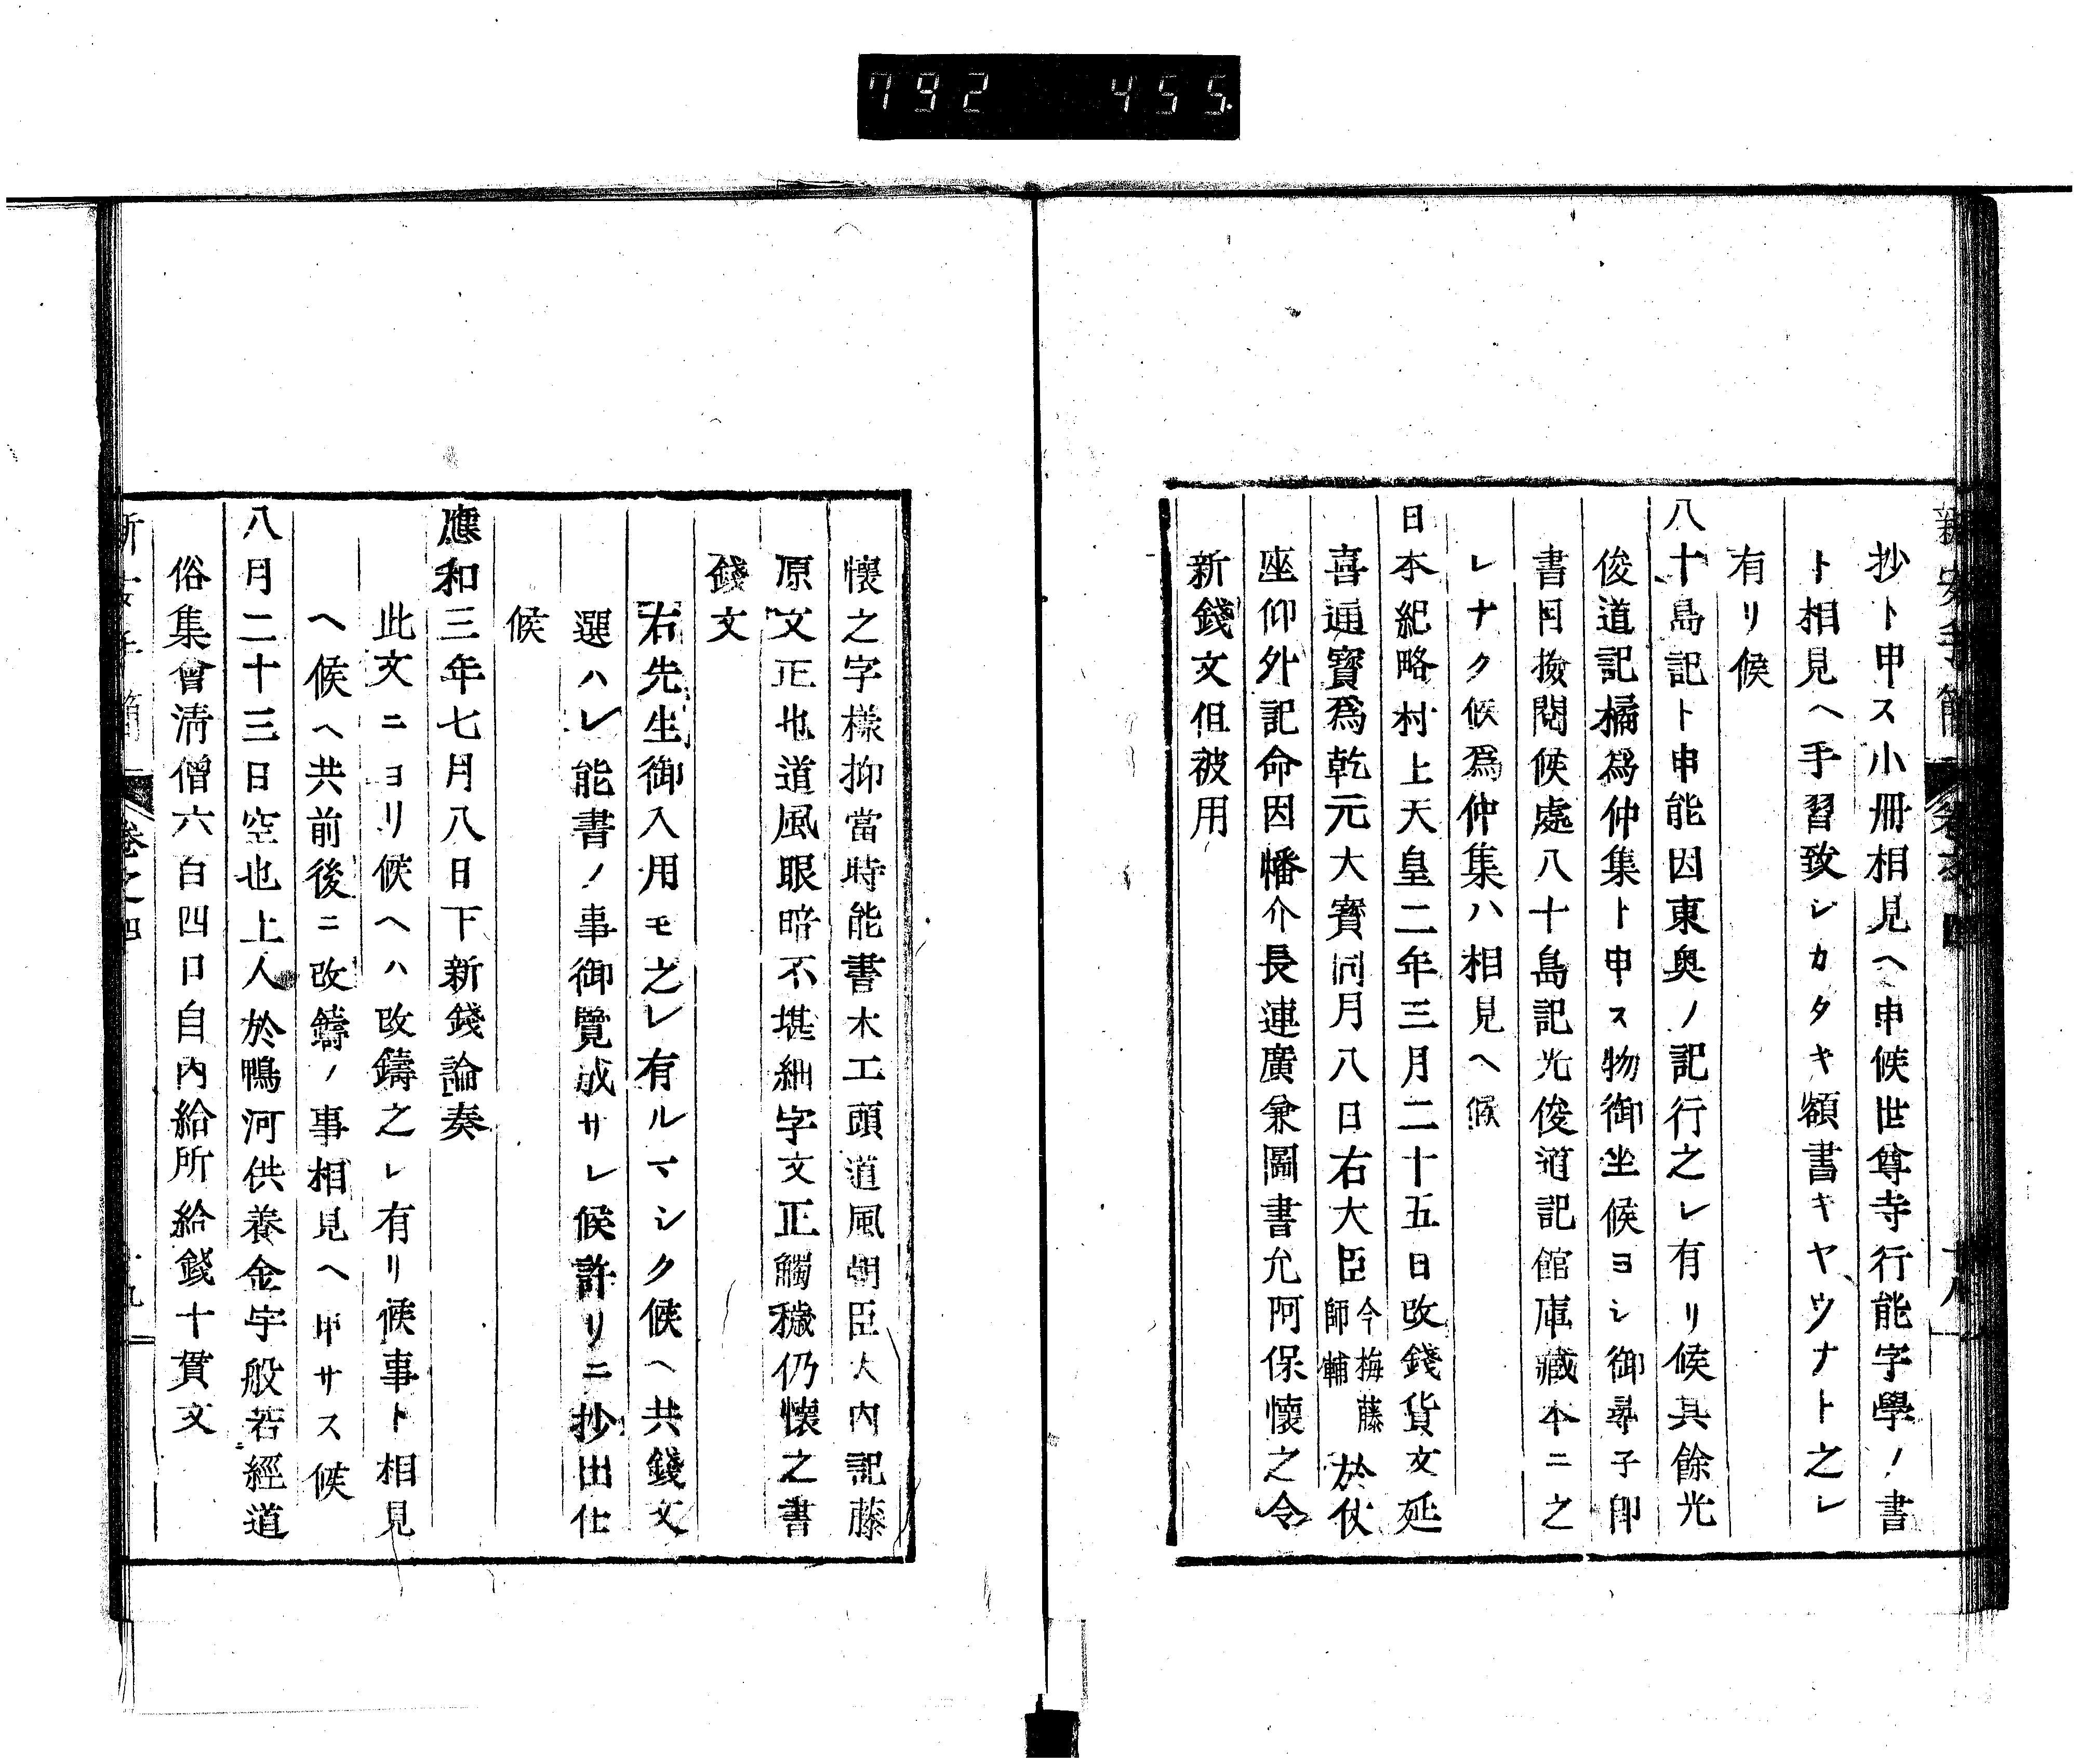 792 455
抄ト申ス小冊相見ヘ申候世尊寺行能字學ノ書
ト相見ヘ手習致シカタキ額書キヤウナト之レ
有リ候
八十島記ト申能因東奥ノ記行之レ有リ候其餘光
俊道記橘爲仲集ト申ス物御坐候ヨシ御尋子即
書目撿閲候處八十島記光俊道記館庫藏本ニ之
レナク候爲仲集ハ相見ヘ候
日本紀略村上天皇二年三月二十五日改錢貨文延
喜通寳爲乾元大寳同月八日右大臣今梅藤師輔於仗
座仰外記命因幡介長連廣兼圖書允阿保懷之令
新錢文但被用
懷之字樣抑當時能書木工頭道風朝臣大内記藤
原文正也道風眼暗不堪細字文正觸穢仍懷之書
錢文
右先生御入用モ之レ有ルマシク候ヘ共錢文
選ハレ能書ノ事御覽成サレ候許リニ抄出仕
候
應和三年七月八日下新錢論奏
此文ニヨリ候ヘハ改鑄之レ有リ候事ト相見
ヘ候ヘ共前後ニ改鑄ノ事相見ヘ申サス候
八月二十三日空也上人於鴨河供養金字般若經道
俗集會淸僧六百四口自内給所給錢十貫文
卷之四